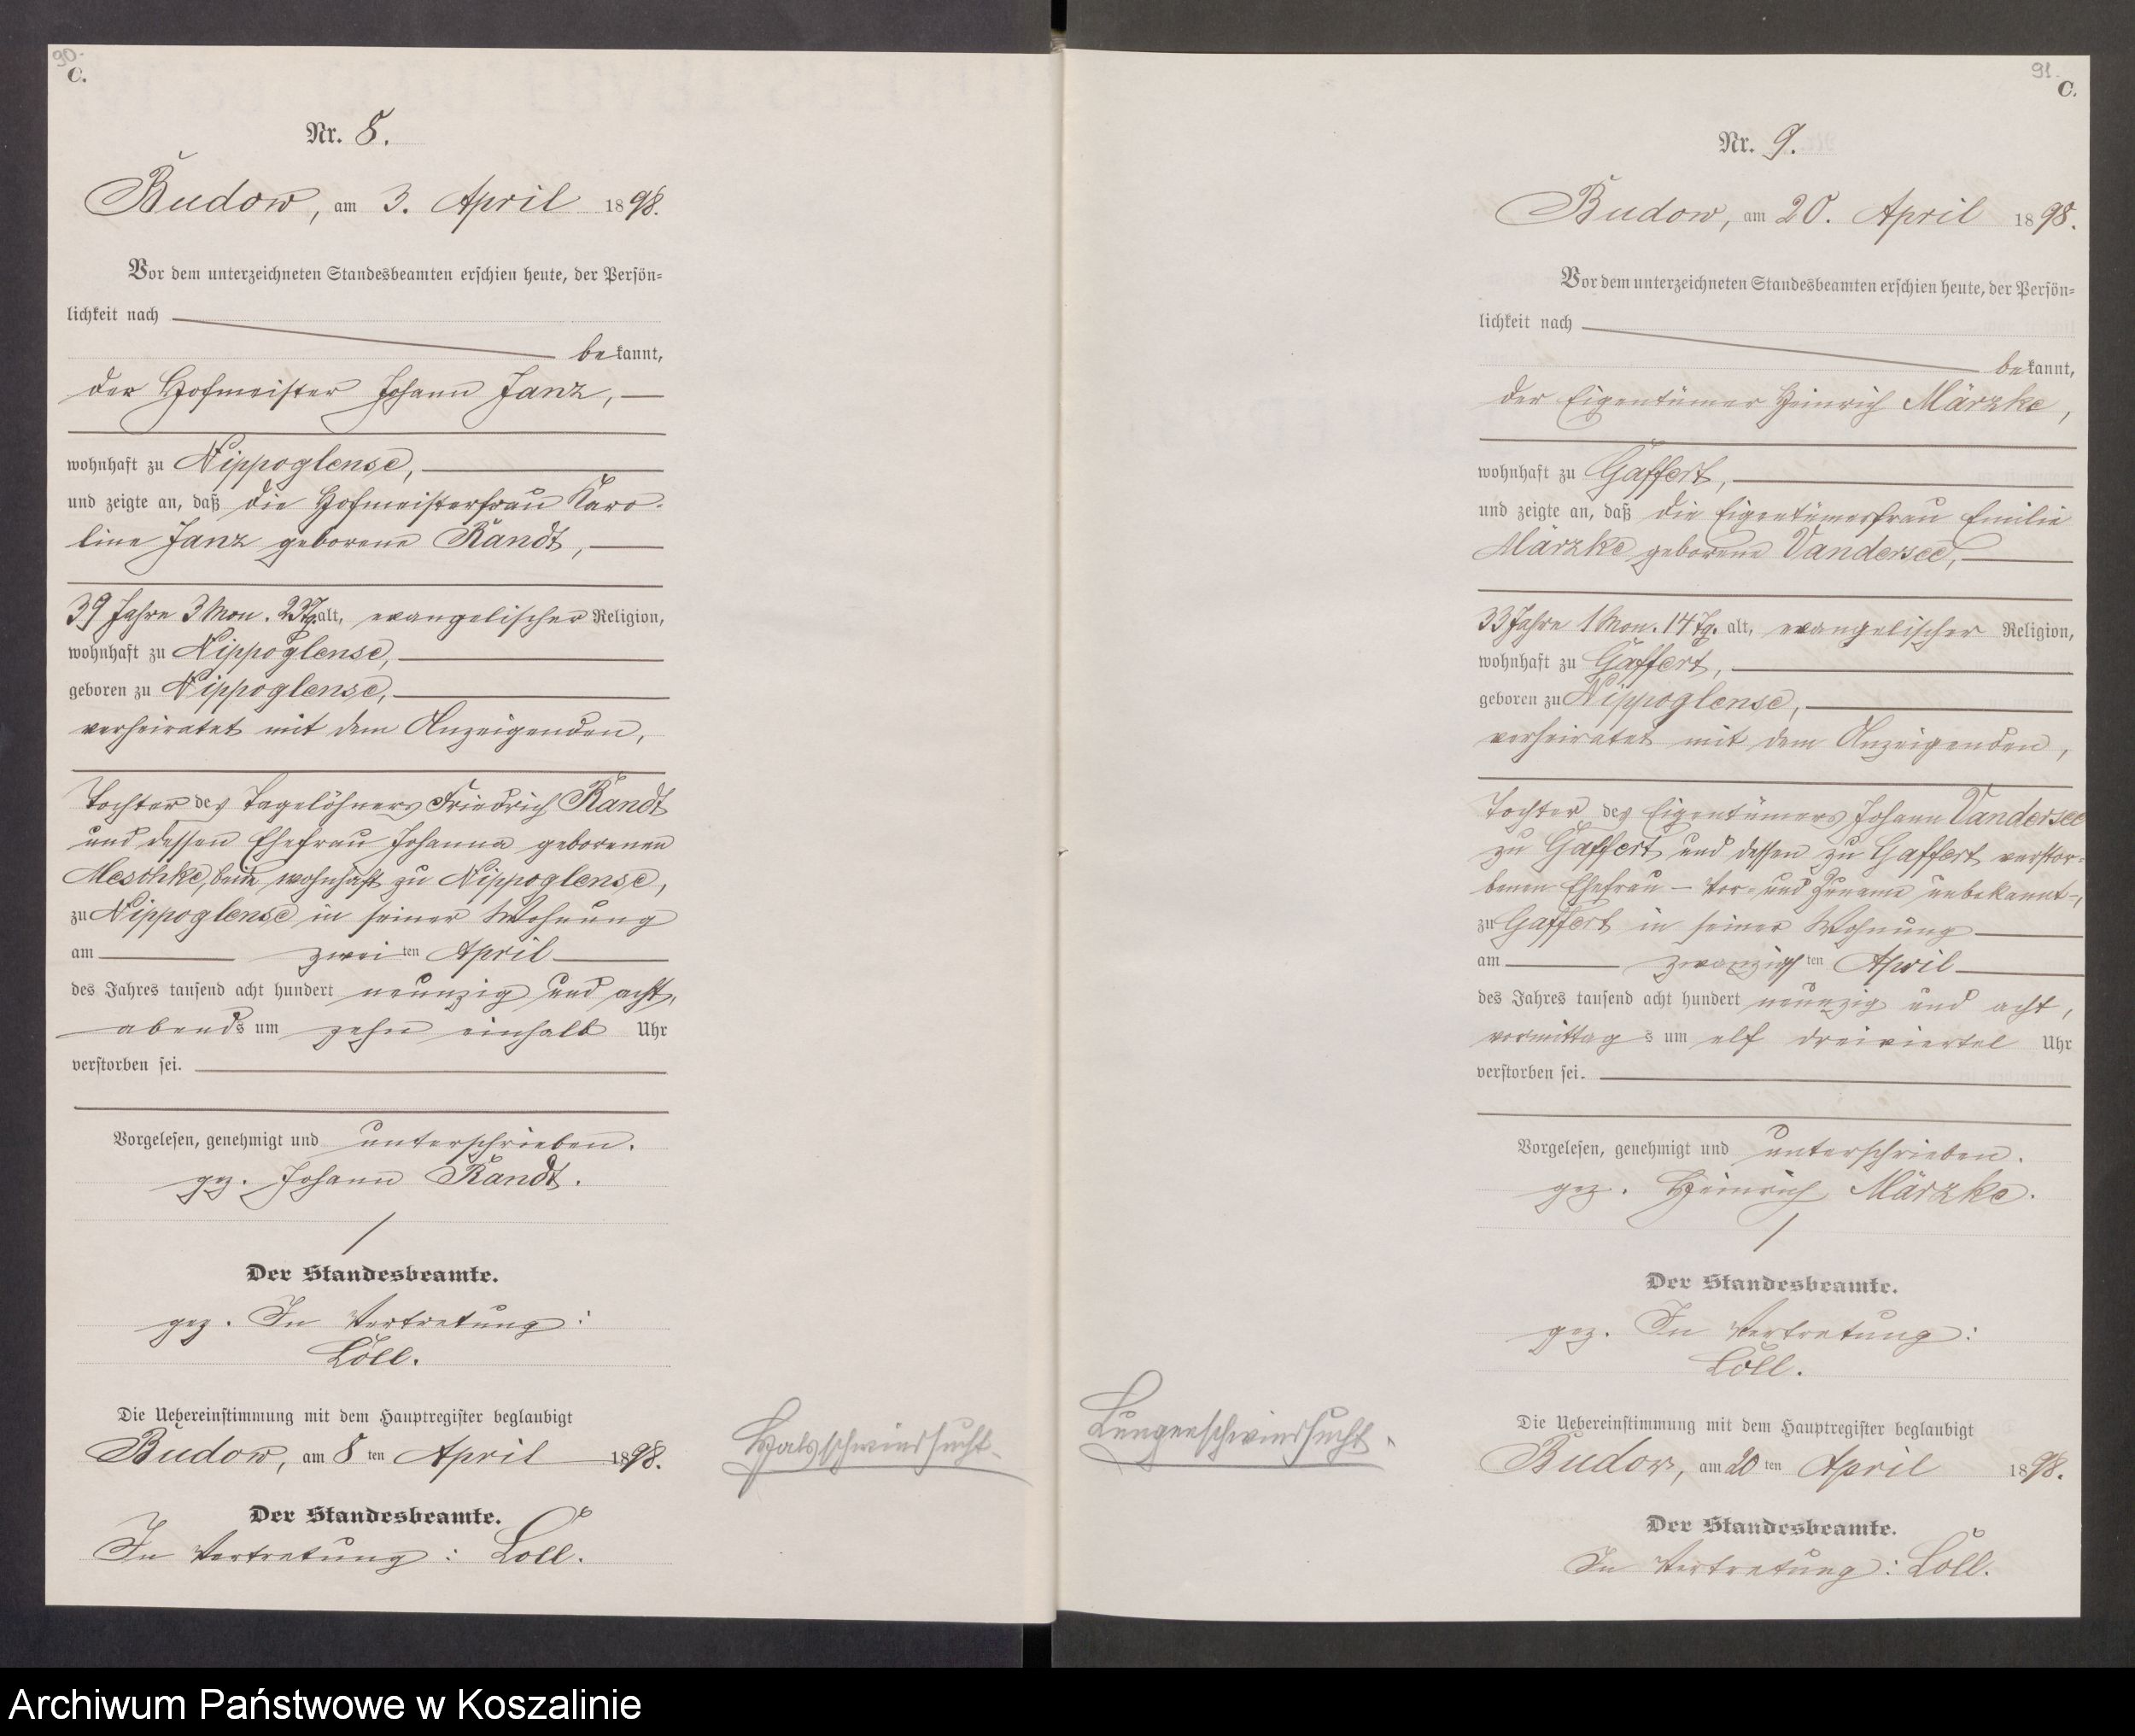 90.
C.
Nr. 8.
Budow, am 3. April 1898.
Vor dem unterzeichneten Standesbeamten erschien heute, der Persön-
lichkeit nach
bekannt,
der Hofmeister Johann Janz,
wohnhaft zu Nippoglense,
und zeigte an, daß die Hofmeisterfrau Karo-
line Janz geborene Randt,
39 Jahre 3 Mon. 23 Tg. alt, evangelischer Religion,
wohnhaft zu Nippoglense,
geboren zu Nippoglense,
verheiratet mit dem Anzeigenden,
Tochter des Tagelöhners Friedrich Randt
und dessen Ehefrau Johanna geborenen
Meschke, beide wohnhaft zu Nippoglense,
zu Nippoglense in seiner Wohnung
am zweiten April
des Jahres tausend acht hundert neunzig und acht,
abends um zehn einhalb Uhr
verstorben sei.
Vorgelesen, genehmigt und unterschrieben.
gez. Johann Randt.
Der Standesbeamte.
gez. In Vertretung:
Löll.
Die Uebereinstimmung mit dem Hauptregister beglaubigt
Budow, am 8ten April 1898.
Der Standesbeamte.
In Vertretung: Löll.
Halsschwindsucht.
91.
C.
Nr. 9.
Budow, am 20. April 1898.
Vor dem unterzeichneten Standesbeamten erschien heute, der Persön-
lichkeit nach
bekannt,
der Eigentümer Heinrich Märzke,
wohnhaft zu Gaffert,
und zeigte an, daß die Eigentümerfrau Emilie
Märzke geborene Vandersee,
33 Jahre 1 Mon. 14 Tg. alt, evangelischer Religion,
wohnhaft zu Gaffert,
geboren zu Nippoglense,
verheiratet mit dem Anzeigenden,
Tochter des Eigentümers Johann Vandersee
zu Gaffert und dessen zu Gaffert verstor-
benen Ehefrau – Vor- und Zuname unbekannt –,
zu Gaffert in seiner Wohnung
am zwanzigsten April
des Jahres tausend acht hundert neunzig und acht,
vormittags um elf dreiviertel Uhr
verstorben sei.
Vorgelesen, genehmigt und unterschrieben.
gez. Heinrich Märzke.
Der Standesbeamte.
gez. In Vertretung:
Löll.
Die Uebereinstimmung mit dem Hauptregister beglaubigt
Budow, am 20ten April 1898.
Der Standesbeamte.
In Vertretung: Löll.
Lungenschwindsucht.
Archiwum Państwowe w Koszalinie